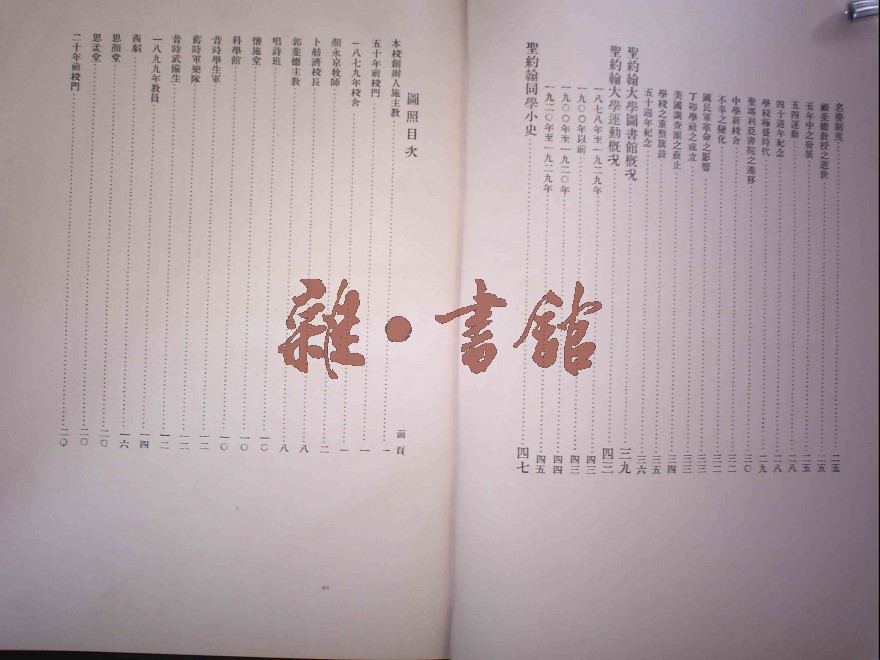 名譽制度……二五
顧斐德教授之逝世……二五
五年中之發展……二五
五四運動……二八
四十週年紀念……二八
學校極盛時代……二九
聖瑪利亞書院之遷移……三〇
中學新校舍……三二
不幸之變化……三二
國民軍革命之影響……三三
丁卯學社之成立……三三
美國調查團之蒞止……三四
學校之重整旗鼓……三五
五十週年紀念……三六
聖約翰大學圖書館概况……三九
聖約翰大學運動概况……四三
一八七八年至一九二九年……四三
一九〇〇年以前……四三
一九〇〇年至一九二〇年……四四
一九二〇年至一九二九年……四五
聖約翰同學小史……四七
圖照目次
前頁
本校創辦人施主教……一
五十年前校門……一
一八七九年校舍……一
顏永京牧師……二
卜舫濟校長……八
郭斐德主教……八
唱詩班……一〇
懷施堂……一〇
科學館……一〇
昔時學生軍……一二
舊時軍樂隊……一二
昔時武備生……一二
一八九九年教員……一四
西劇……一六
思顏堂……二〇
思孟堂……二〇
二十年前校門……二〇
雜·書館